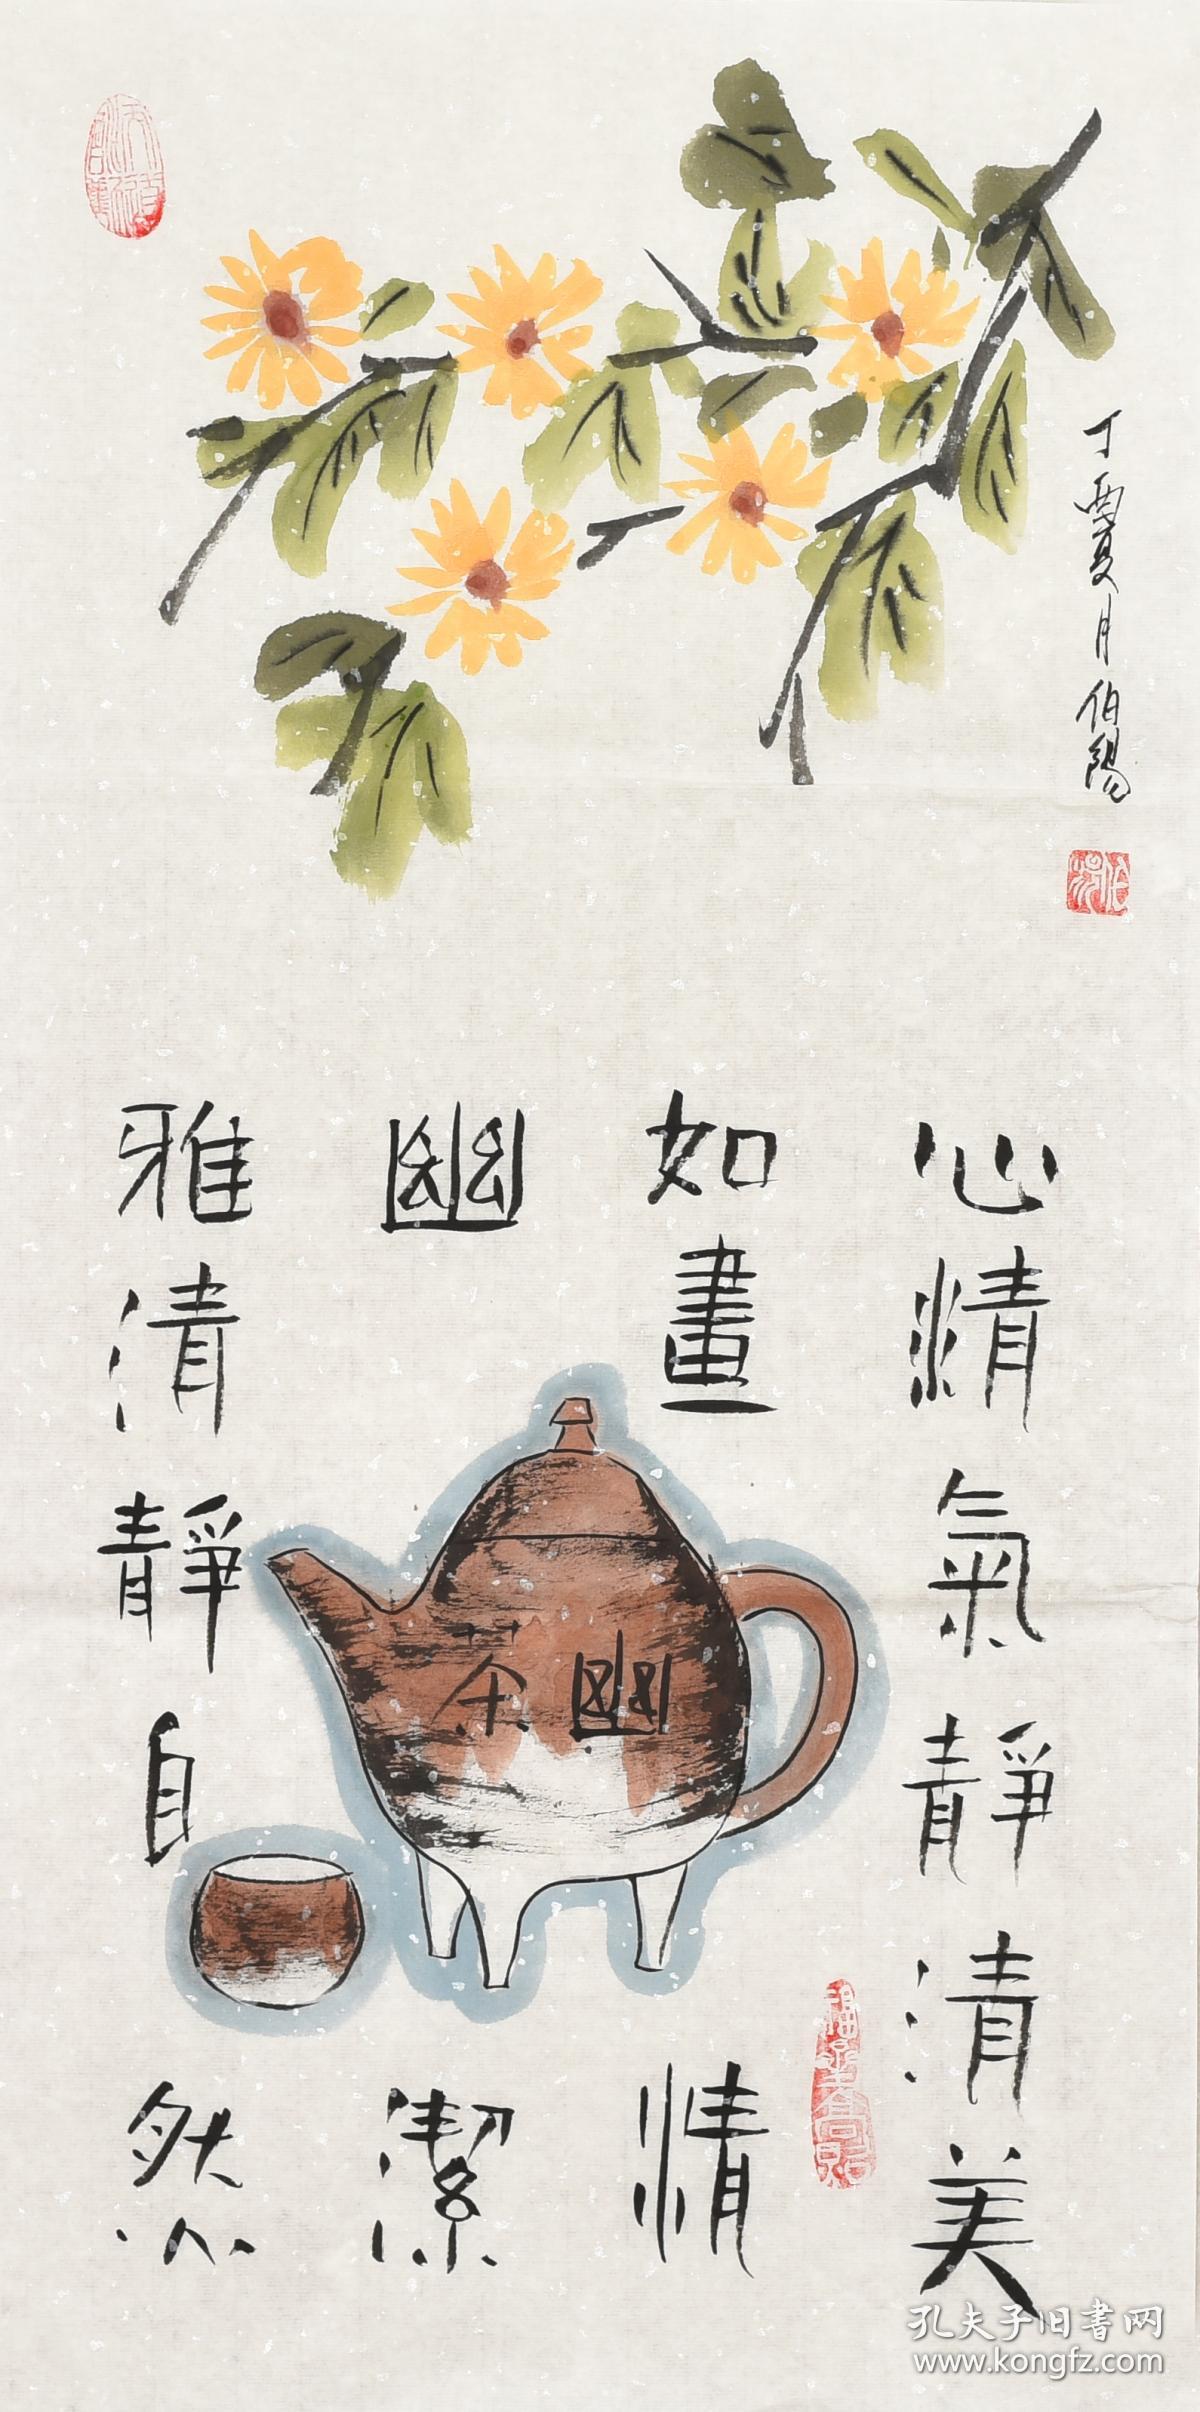 丁酉夏月伯陽
心情氣靜清美
如畫情
幽潔
雅清靜自然
幽茶
孔夫子旧书网
www.kongfz.com